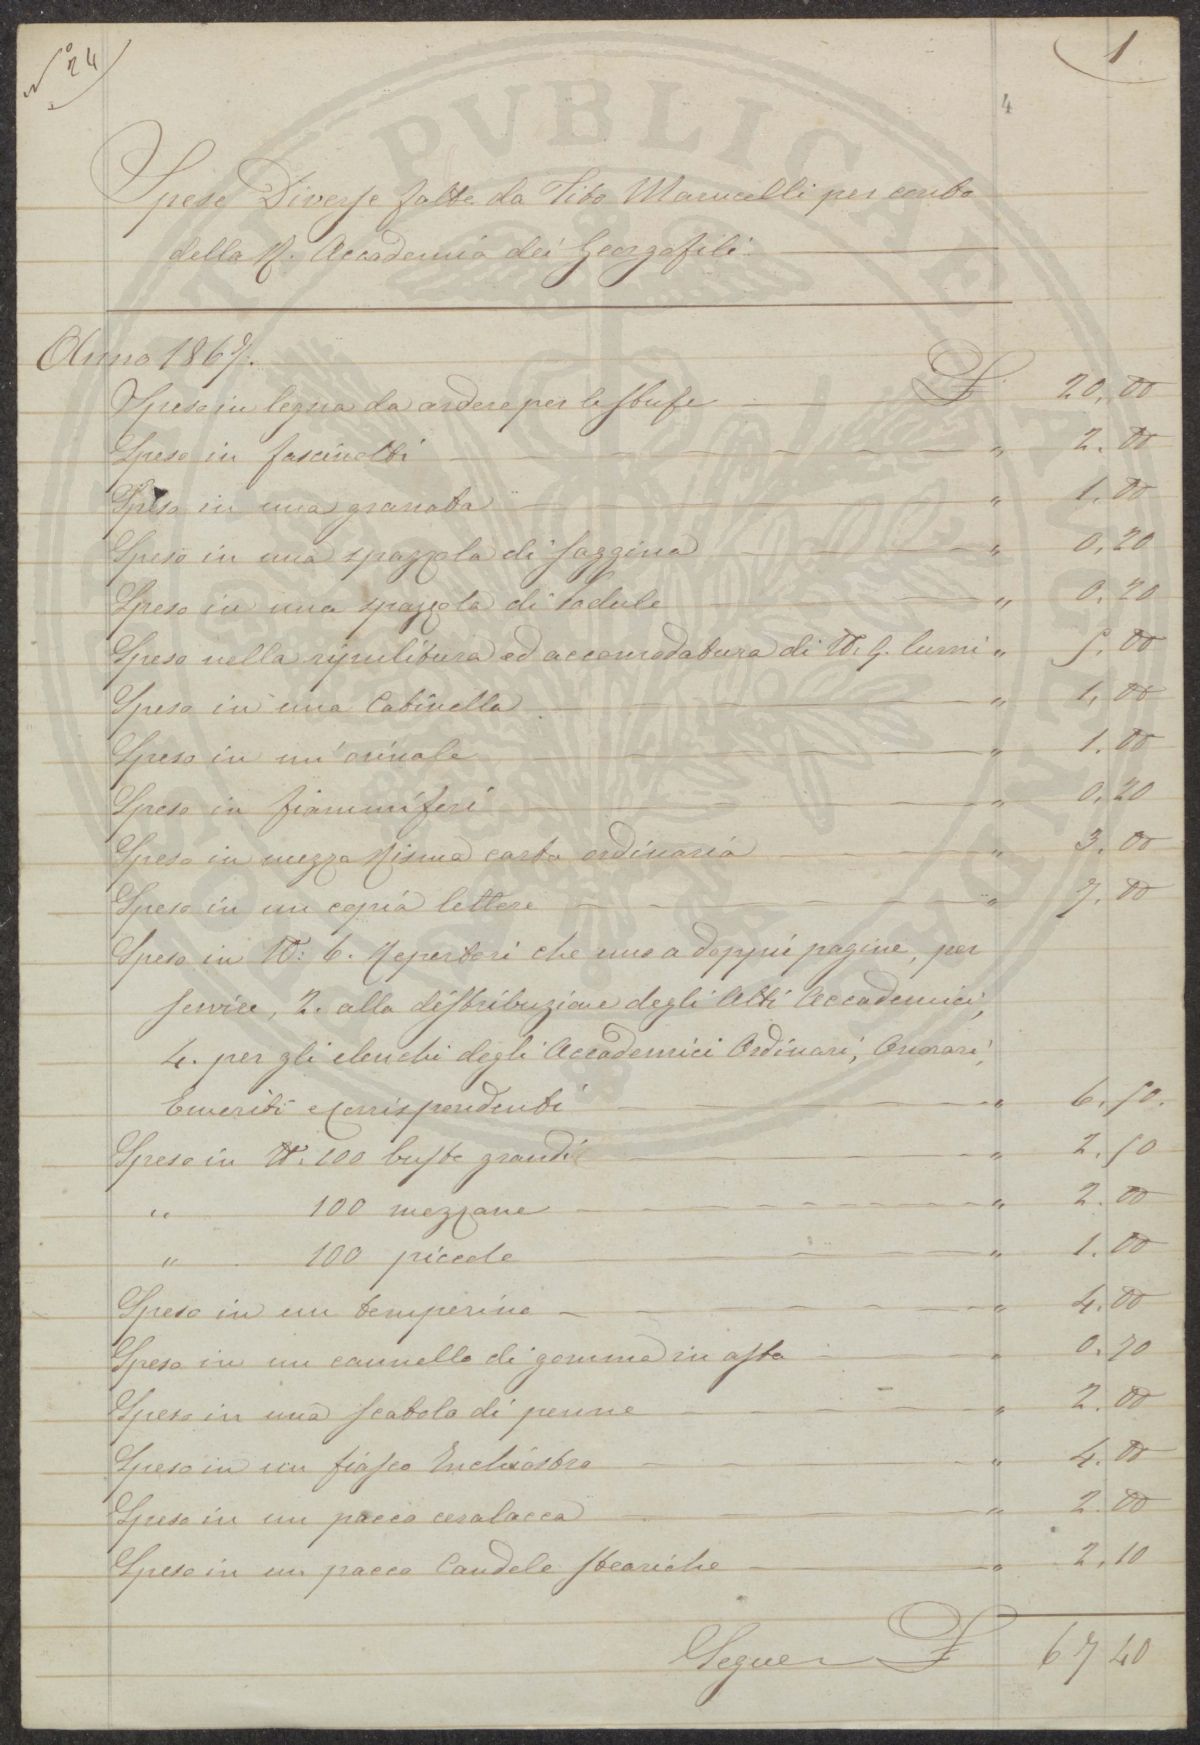 N.º 24
1
4
Spese Diverse fatte da Tito Marucelli per conto
della R. Accademia dei Georgofili
Anno 1867.
Speso in legna da ardere per le stufe £ 20,00
Speso in fascinotti " 2.00
Speso in una granata " 1.00
Speso in una spazzola di saggina " 0,20
Speso in una spazzola di padule " 0.20
Speso nella ripulitura ed accomodatura di N. 9. lumi " 5.00
Speso in una Catinella " 1,00
Speso in un'orinale " 1.00
Speso in fiammiferi " 0.20
Speso in mezza Risma carta ordinaria " 3.00
Speso in un copia lettere " 7.00
Speso in N: 6. Repertori che uno a doppie pagine, per
servire, 2. alla distribuzione degli Atti Accademici,
4. per gli elenchi degli Accademici Ordinari, Onorari,
Emeriti e Corrispondenti " 6.50.
Speso in N. 100 buste grandi " 2.50
" 100 mezzane " 2.00
" 100 piccole " 1.00
Speso in un temperino " 4.00
Speso in un cannello di gomma in asta " 0.70
Speso in una scatola di penne " 2.00
Speso in un fiasco Inchiostro " 4.00
Speso in un pacco ceralacca " 2.00
Speso in un pacco Candele steariche " 2,10
Segue £ 67 40